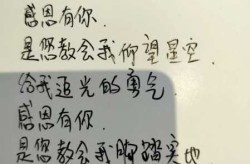 感恩有你.
是您教会我仰望星空.
给我追光的勇气.
感恩有你.
是您教会我脚踏实地